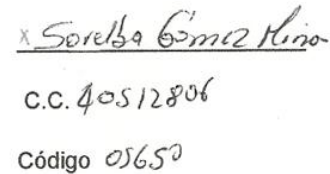 x Sorelba Gómez Mina
C.C. 40512806
Código 05650